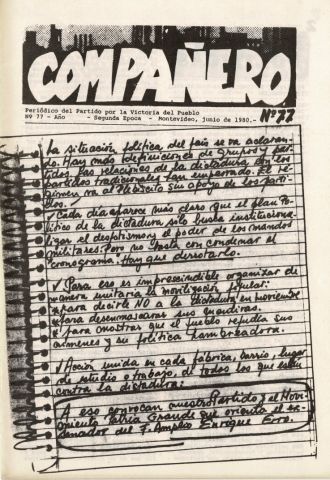 COMPAÑERO
Nº 77
Periódico del Partido por la Victoria del Pueblo
Nº 77 - Año - Segunda Epoca - Montevideo, junio de 1980.-
La situación política del país se va aclaran-
do. Hay más definiciones de grupos y par-
tidos. Las relaciones de la dictadura con los
partidos tradicionales han empeorado. El ré-
gimen va al Plebiscito sin apoyo de los parti-
dos.
✓ Cada día aparece más claro que el plan Po-
lítico de la dictadura sólo busca instituciona-
lizar el despotismo y el poder de los mandos
militares. Pero no basta con condenar el
cronograma: Hay que derrotarlo.
✓ Para eso es imprescindible organizar de
manera unitaria la movilización popular:
*para decirle NO a la dictadura en noviembre
*para desenmascarar sus mentiras.
*para mostrar que el pueblo repudia sus
crímenes y su política hambreadora.
✓ Acción unida en cada fábrica, barrio, lugar
de estudio o trabajo, de todos los que estén
contra la dictadura:
A eso convocan nuestro Partido y el Movi-
miento Patria Grande que orienta el ex-
senador del F. Amplio Enrique Erro.